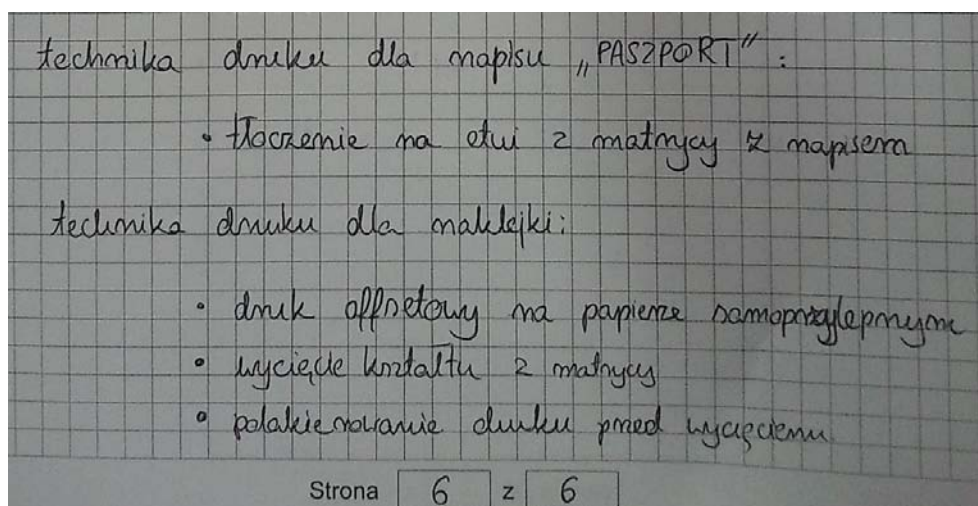 technika druku dla napisu „PASZPORT” :
• tłoczenie na etui z matrycy z napisem
technika druku dla naklejki:
• druk offsetowy na papierze samoprzylepnym
• wycięcie kształtu z matrycy
• polakierowanie druku przed wycięciem
Strona 6 z 6